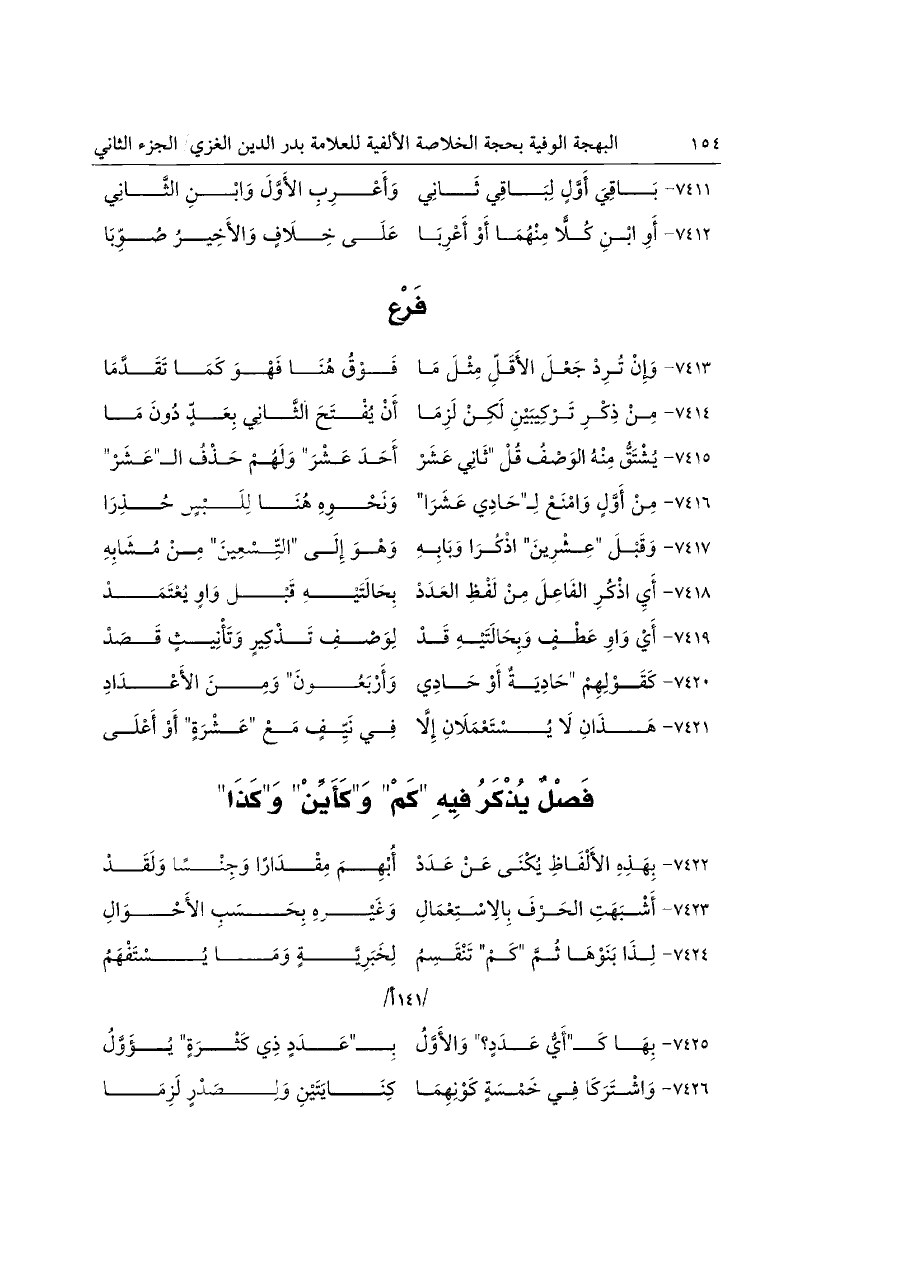 ١٥٤ البهجة الوفية بحجة الخلاصة الألفية للعلامة بدر الدين الغزي/ الجزء الثاني
٧٤١١- بَاقِيَ أَوَّلٍ لِبَاقِي ثَانِي وَأَعْرِبِ الأَوَّلَ وَابْنِ الثَّانِي
٧٤١٢- أَوِ ابْنِ كُلًّا مِنْهُمَا أَوْ أَعْرِبَا عَلَى خِلَافٍ وَالأَخِيرُ صُوِّبَا
فَرْع
٧٤١٣- وَإِنْ تُرِدْ جَعْلَ الأَقَلِّ مِثْلَ مَا فَوْقُ هُنَا فَهْوَ كَمَا تَقَدَّمَا
٧٤١٤- مِنْ ذِكْرِ تَرْكِيبَيْنِ لَكِنْ لَزِمَا أَنْ يُفْتَحَ الثَّانِي بِعَدٍّ دُونَ مَا
٧٤١٥- يُشْتَقُّ مِنْهُ الوَصْفُ قُلْ "ثَانِي عَشَرْ أَحَدَ عَشْرَ" وَلَهُمْ حَذْفُ الـ"عَشَرْ"
٧٤١٦- مِنْ أَوَّلٍ وَامْنَعْ لِـ"حَادِي عَشَرَا" وَنَحْوِهِ هُنَا لِلَبْسٍ حُذِرَا
٧٤١٧- وَقَبْلَ "عِشْرِينَ" اذْكُرَا وَبَابِهِ وَهْوَ إِلَى "التِّسْعِينَ" مِنْ مُشَابِهِ
٧٤١٨- أَيِ اذْكُرِ الفَاعِلَ مِنْ لَفْظِ العَدَدْ بِحَالَتَيْهِ قَبْلَ وَاوٍ يُعْتَمَدْ
٧٤١٩- أَيْ وَاوِ عَطْفٍ وَبِحَالَتَيْهِ قَدْ لِوَصْفِ تَذْكِيرٍ وَتَأْنِيثٍ قَصَدْ
٧٤٢٠- كَقَوْلِهِمْ "حَادِيَةٌ أَوْ حَادِي وَأَرْبَعُونَ" وَمِنَ الأَعْدَادِ
٧٤٢١- هَذَانِ لَا يُسْتَعْمَلَانِ إِلَّا فِي نَيِّفٍ مَعْ "عَشْرَةٍ" أَوْ أَعْلَى
فَصْلٌ يُذْكَرُ فِيهِ "كَمْ" وَ"كَأَيِّنْ" وَ"كَذَا"
٧٤٢٢- بِهَذِهِ الأَلْفَاظِ يُكْنَى عَنْ عَدَدْ أُبْهِمَ مِقْدَارًا وَجِنْسًا وَلَقَدْ
٧٤٢٣- أَشْبَهَتِ الحَرْفَ بِالِاسْتِعْمَالِ وَغَيْرِهِ بِحَسَبِ الأَحْوَالِ
٧٤٢٤- لِذَا بَنَوْهَا ثُمَّ "كَمْ" تَنْقَسِمُ لِخَبَرِيَّةٍ وَمَا يُسْتَفْهَمُ
/١٤١أ/
٧٤٢٥- بِهَا كَـ"أَيُّ عَدَدٍ؟" وَالأَوَّلُ بِـ"عَدَدٍ ذِي كَثْرَةٍ" يُؤَوَّلُ
٧٤٢٦- وَاشْتَرَكَا فِي خَمْسَةٍ كَوْنِهِمَا كِنَايَتَيْنِ وَلِصَدْرٍ لَزِمَا